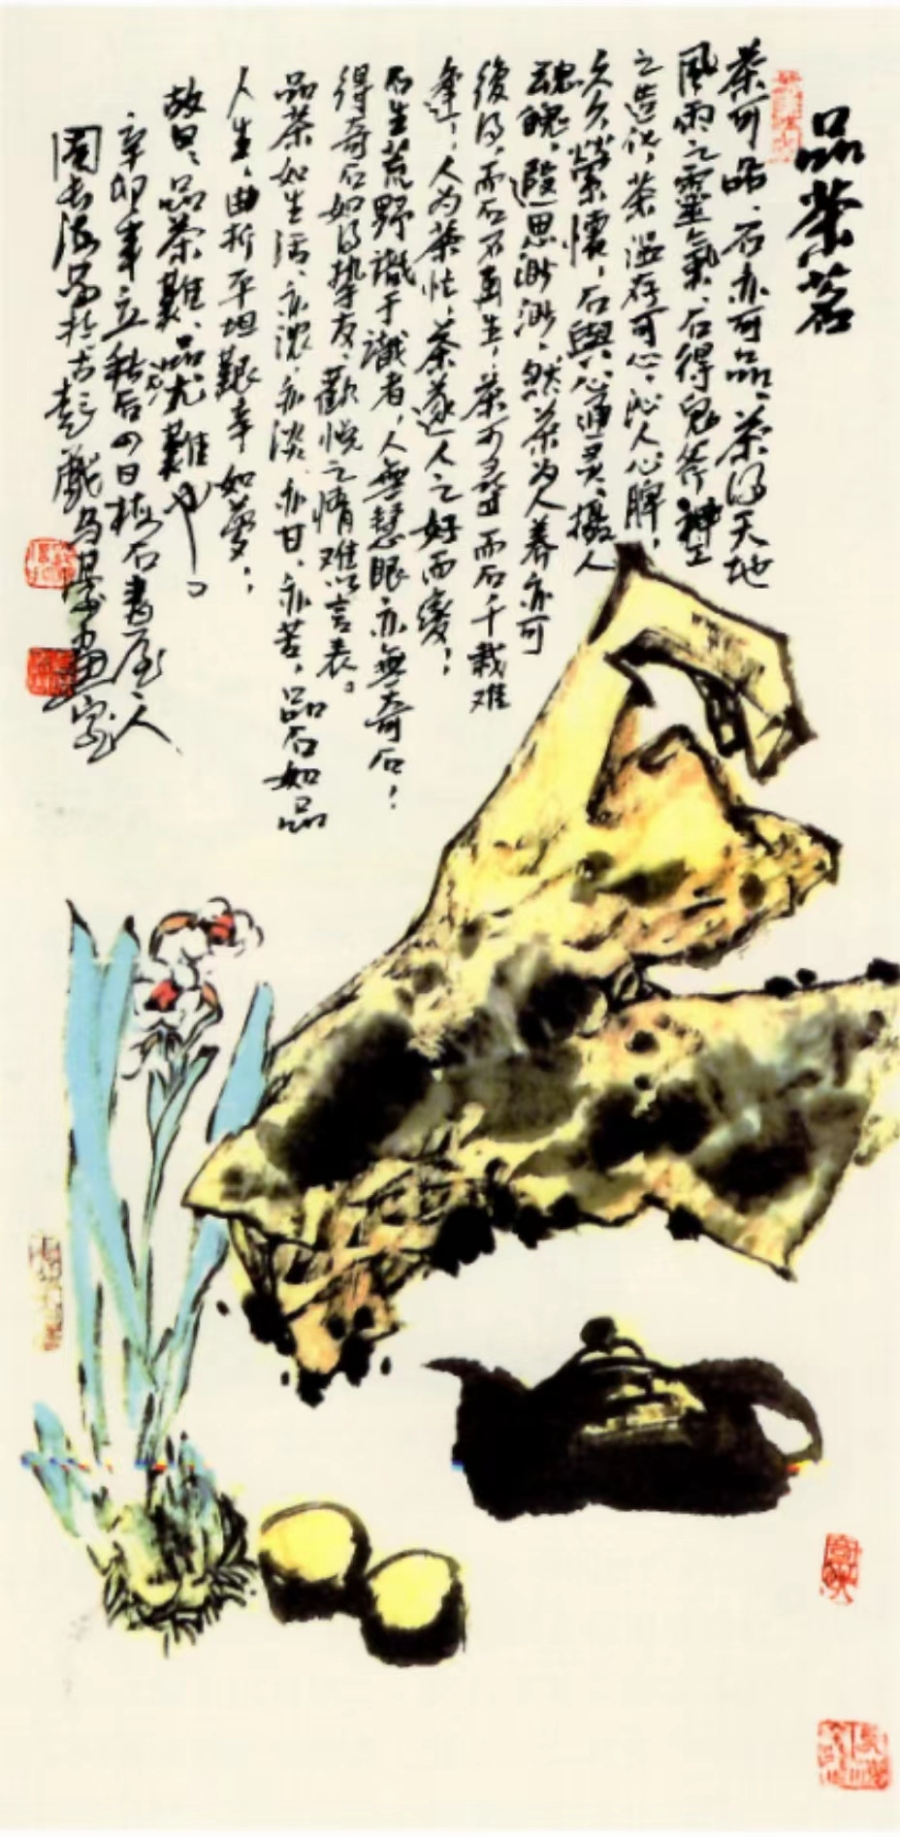 品茶茗
茶可品、石亦可品、茶得天地
風雨之靈氣、石得鬼斧神工
之造化，茶温存可心，沁人心脾，
久久縈懷，石與心通灵、攝人
魂魄，遐思渺渺，然茶为人养亦可
後得，而石不再生，茶可尋而石千载难
逢，人为茶忙，茶逐人之好而變！
石生荒野識于識者，人無慧眼亦無奇石！
得奇石如得挚友，歡悦之情难以言表。
品茶如生活、亦濃、亦淡、亦甘、亦苦，品石如品
人生，曲折平坦艱辛如夢，
故曰、品茶難、品石尤難也。
辛卯年立秋后四日 石書屋人
周 海 於古彭戲馬 畫室